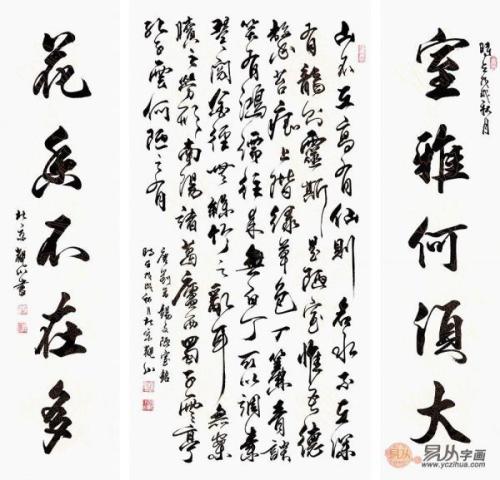 時在戊戌秋月
室雅何須大
山不在高有仙則名水不在深
有龍則靈斯是陋室惟吾德
馨苔痕上階緑草色入簾青談
笑有鴻儒往来無白丁可以調素
琴閱金經無絲竹之亂耳無案
牘之勞形南陽諸葛廬西蜀子雲亭
孔子雲何陋之有
唐劉禹錫文陋室銘
時在戊戌秋月北京觀山
花香不在多
北京觀山書
易从字画
www.yczihua.com